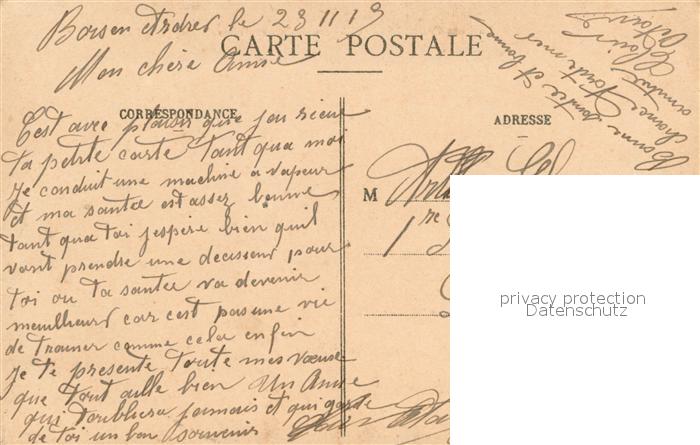 Bois en Ardres le 23 11 19
CARTE POSTALE
Mon chère Amie
CORRESPONDANCE
ADRESSE
C'est avec plaisir que jai recue
ta petite carte tant qua moi
je conduit une machine a vapeur
et ma santée est assez bonne
tant qua toi jespère bien quil
vont prendre une decision pour
toi ou ta santee va devenir
meuilheur car cest pas une vie
de trainer comme cela enfin
je te presente toute mes vœux
que tout aille bien Un Amie
qui toubliera jamais et qui garde
de toi un bon souvenir
M
1re
Bonne santée et bonne
chance
privacy protection
Datenschutz